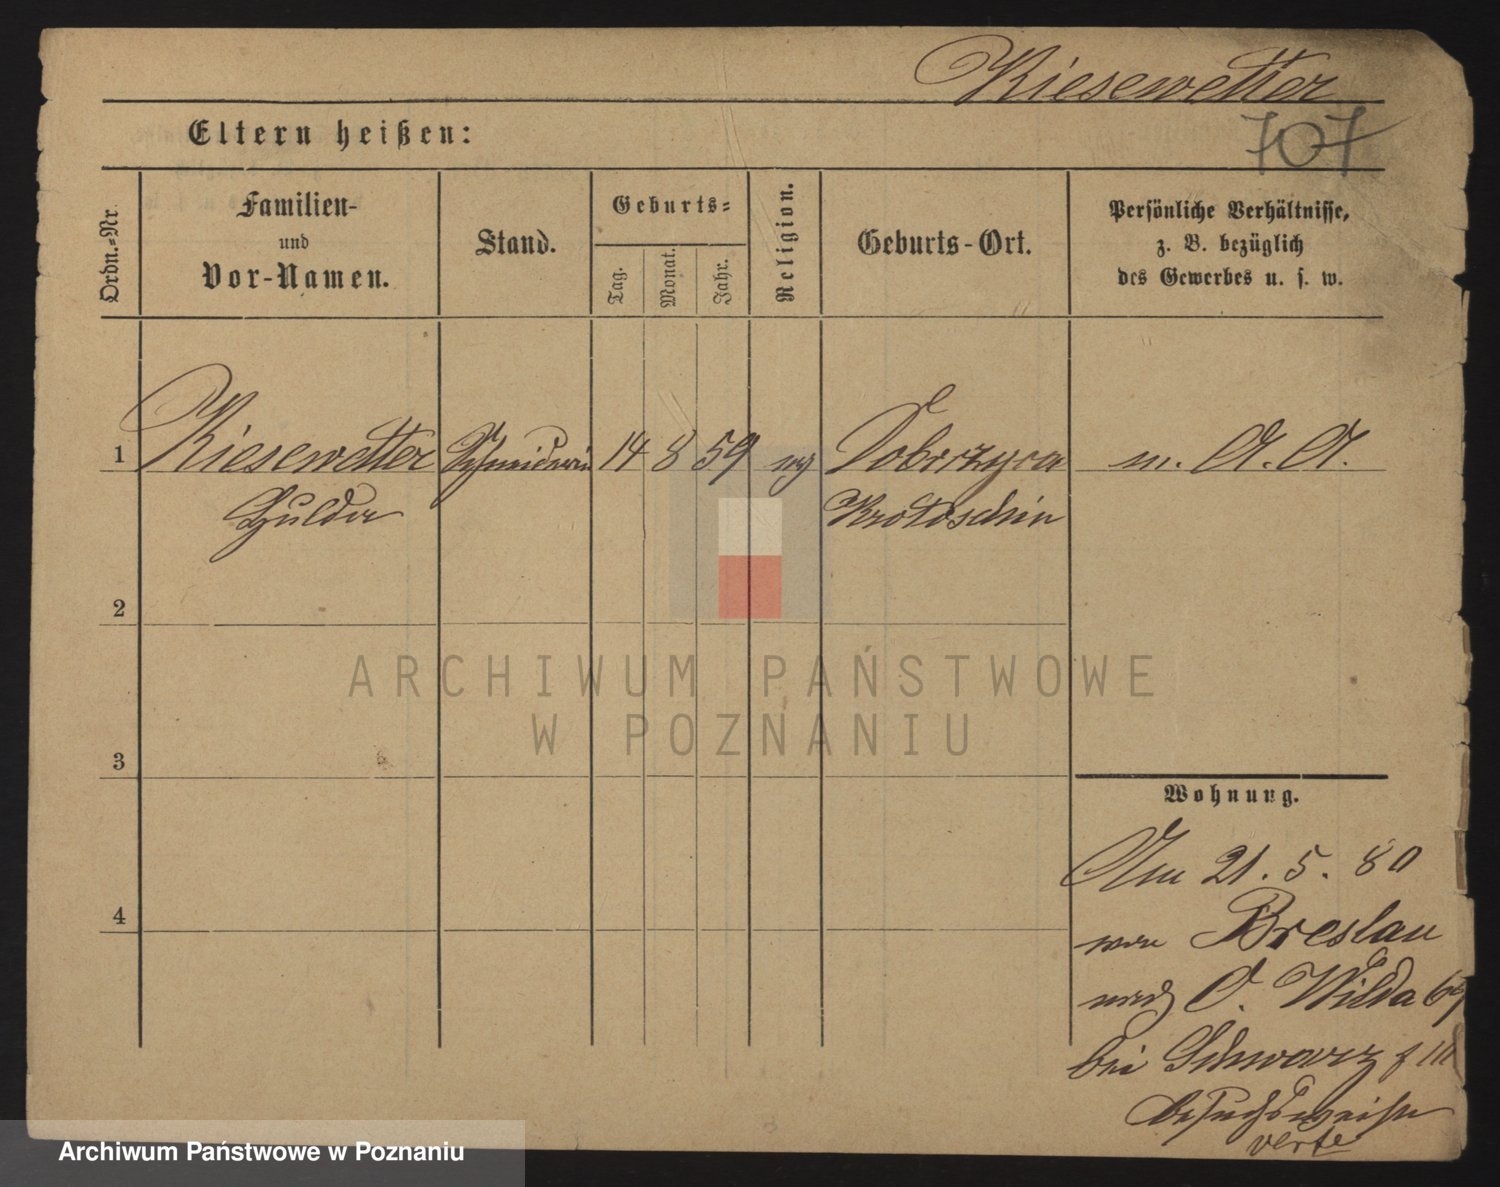 Kiesewetter
707
Eltern heißen:
Ordn.-Nr.
Familien-
und
Vor-Namen.
Stand.
Geburts-
Tag.
Monat.
Jahr.
Religion.
Geburts-Ort.
Persönliche Verhältnisse,
z. B. bezüglich
des Gewerbes u. s. w.
1 Kiesewetter Schneiderin 14 8 59 Dobrzyca m. A. A.
Hulda Krotoschin
2
ARCHIWUM PAŃSTWOWE
W POZNANIU
3
Wohnung.
Am 21. 5. 80
von Breslau
4
nach O. Wilda 69
bei Schwarz f III
besuchsweise
verte
Archiwum Państwowe w Poznaniu